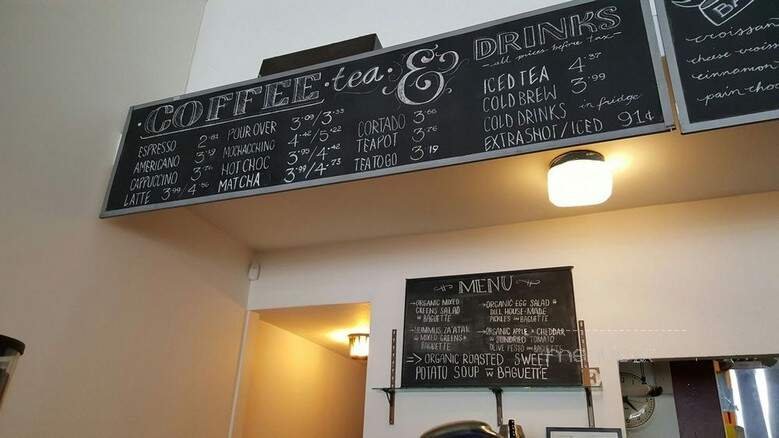 COFFEE • tea • & DRINKS
all prices before tax
ESPRESSO 2.81
AMERICANO 3.19
CAPPUCCINO 3.76
LATTE 3.99/4.56
POUR OVER 3.09/3.33
MOCHACCHINO 4.42/5.22
HOT CHOC 3.90/4.42
MATCHA 3.99/4.73
CORTADO 3.66
TEAPOT 3.76
TEA TO GO 3.19
ICED TEA 4.37
COLD BREW 3.99
COLD DRINKS in fridge
EXTRA SHOT/ICED 91¢
croissan
cheese crois
cinnamon
pain-choc
MENU
→ORGANIC MIXED
GREENS SALAD
W BAGUETTE
→HUMMUS ZA'ATAR
W MIXED GREENS
BAGUETTE
→ORGANIC EGG SALAD W
DILL HOUSE-MADE
PICKLES ON BAGUETTE
→ORGANIC APPLE + CHEDDAR
W SUNDRIED TOMATO
OLIVE PESTO ON BAGUETTE
⇒ORGANIC ROASTED SWEET
POTATO SOUP W BAGUETTE